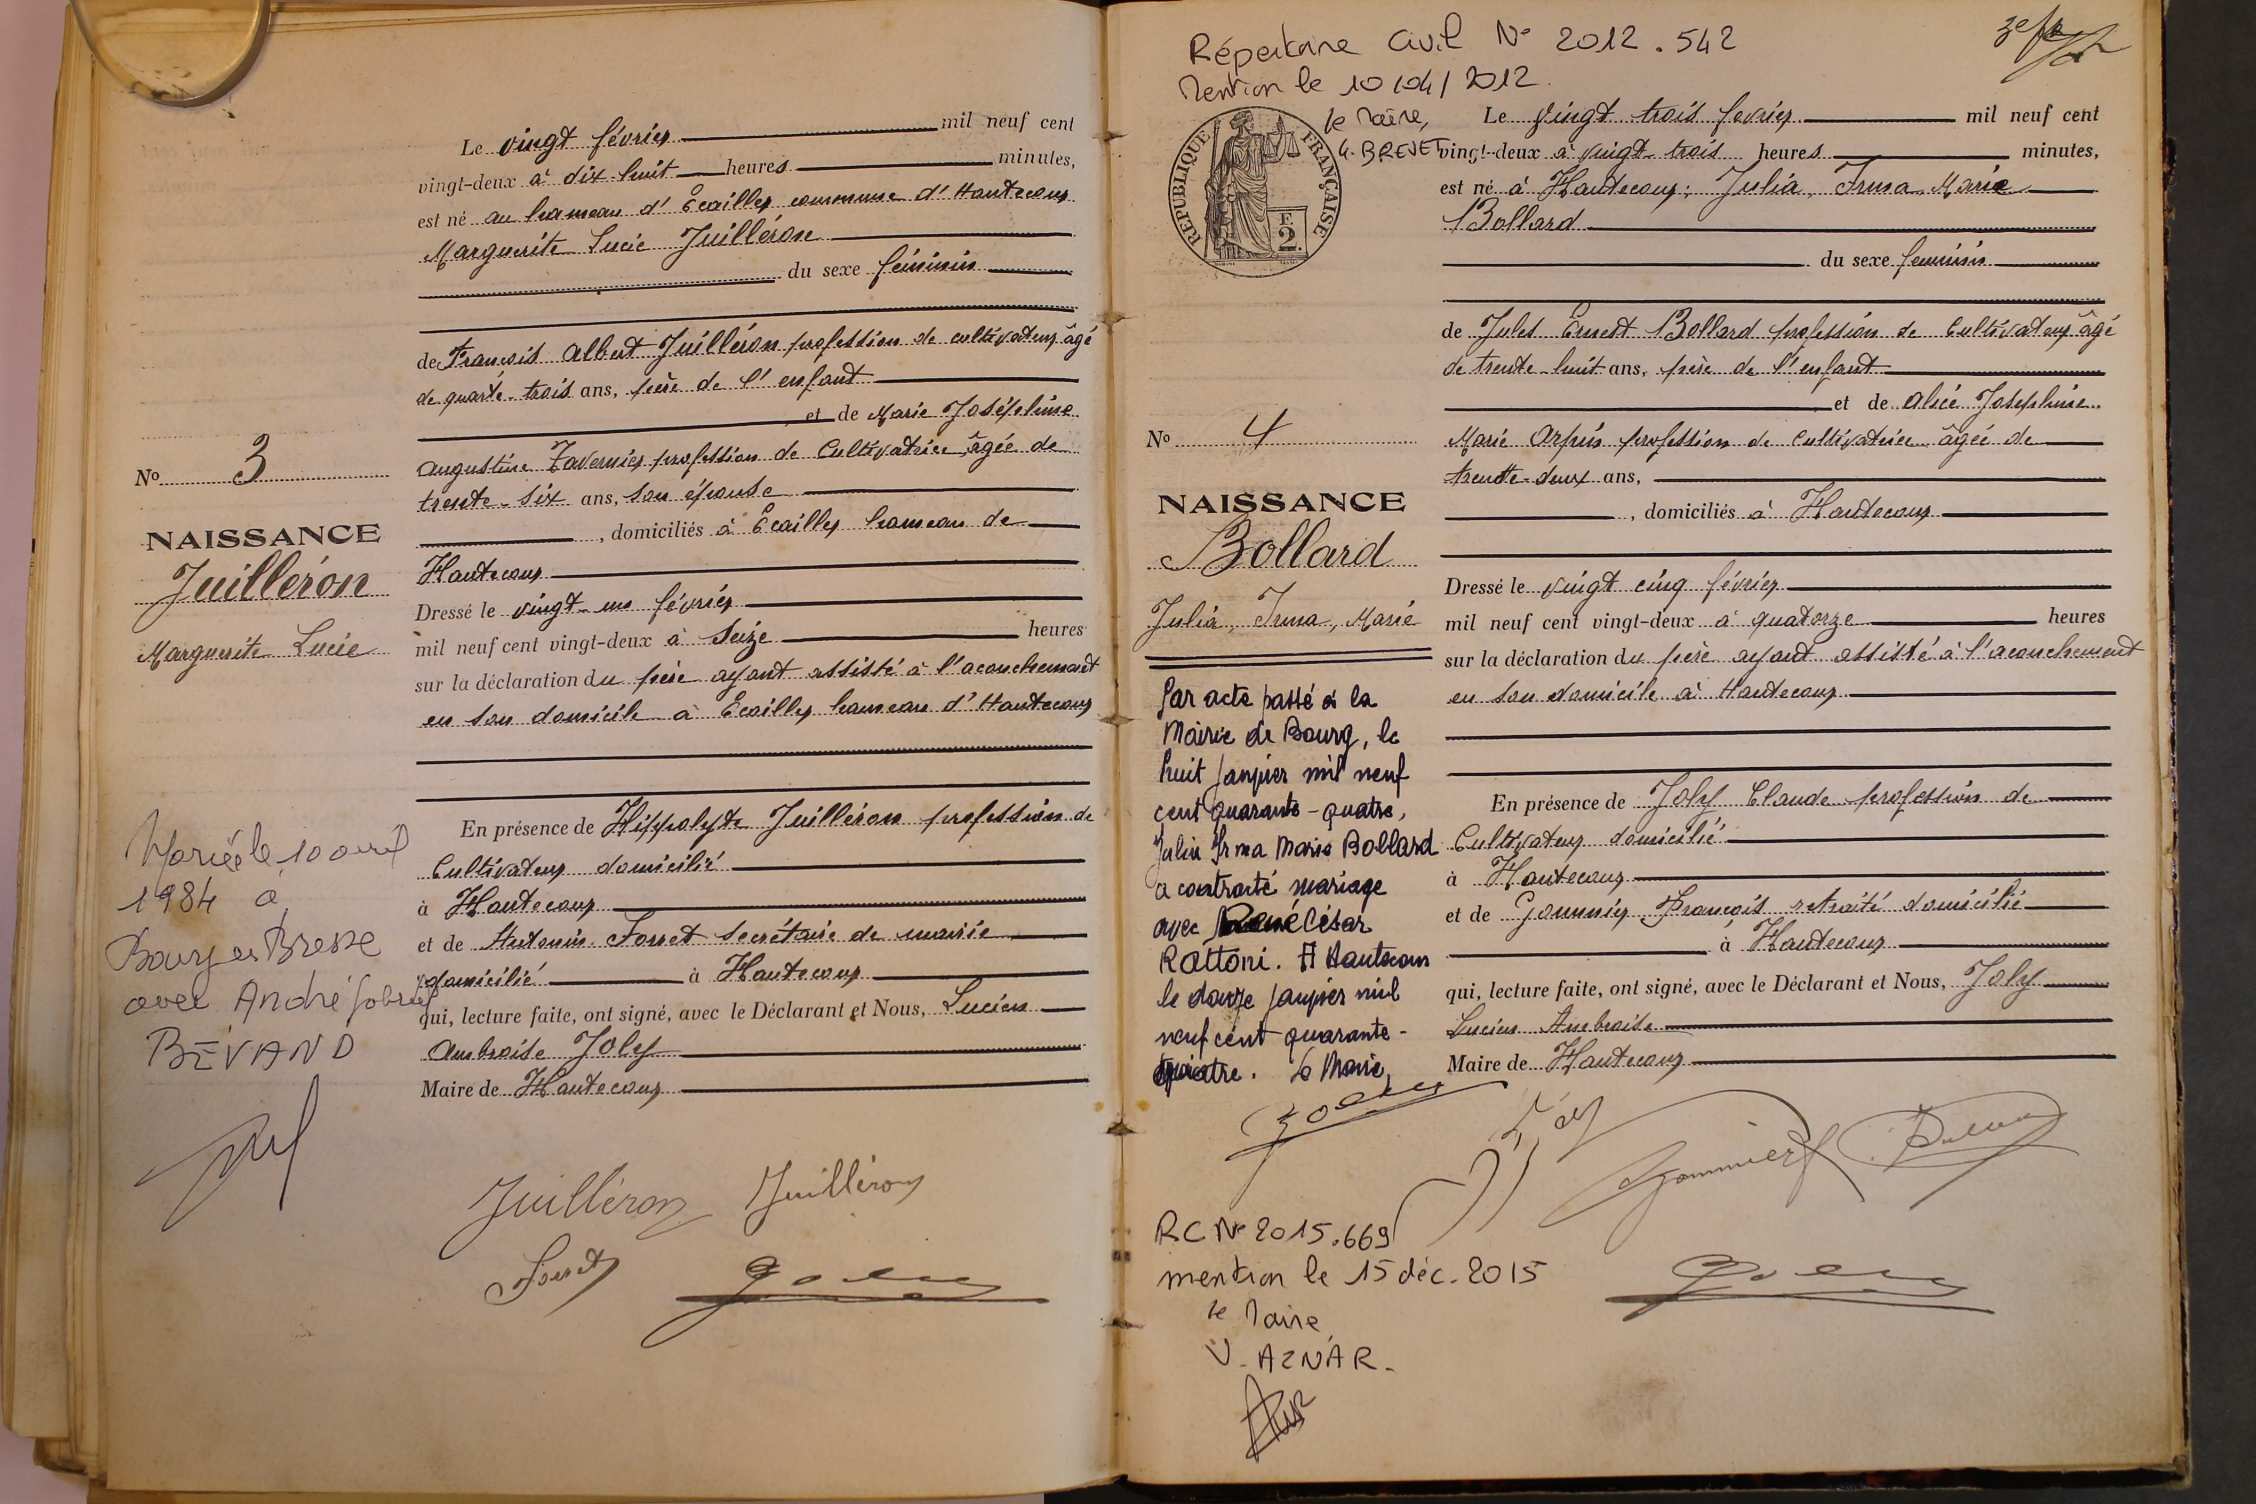 Le vingt février mil neuf cent
vingt-deux à dix huit heures minutes,
est né au hameau d'Ecailley commune d'Hautecour
Marguerite Lucie Juilléron
du sexe féminin
de François Albert Juilléron profession de cultivateur âgé
de quarte-trois ans, père de l'enfant
et de Marie Joséphine
Augustine Tavernier profession de Cultivatrice âgée de
trente-six ans, son épouse
, domiciliés à Ecailley hameau de
Hautecour
Dressé le vingt-un février
mil neuf cent vingt-deux à Seize heures
sur la déclaration du père ayant assisté à l'acouchement
en son domicile à Ecailley hameau d'Hautecour
En présence de Hippolyte Juilléron profession de
Cultivateur domicilié
à Hautecour
et de Antonin Forret Secrétaire de mairie
domicilié à Hautecour
qui, lecture faite, ont signé, avec le Déclarant et Nous, Lucien
Ambroise Joly
Maire de Hautecour
No 3
NAISSANCE
Juilléron
Marguerite Lucie
Mariée le 10 avril
1984 à
Bourg en Bresse
avec André Gabriel
BÉVAND
Juilléron Juilléron
Forret Joly
Répertoire Civil No 2012.542
Mention le 10/04/2012.
le Maire,
G. BREVET
RÉPUBLIQUE FRANÇAISE
F.
2.
Le Vingt trois fevrier mil neuf cent
vingt-deux à vingt-trois heures minutes,
est né à Hautecour: Julia, Irma, Marie
Bollard
du sexe feminin
de Jules Ernest Bollard profession de Cultivateur âgé
de trente huit ans, père de l'enfant
et de Alice Josephine
Marie Arpin profession de Cultivatrice âgée de
trente-deux ans,
, domiciliés à Hautecour
Dressé le vingt cinq février
mil neuf cent vingt-deux à quatorze heures
sur la déclaration du père ayant assisté à l'acouchement
en son domicile à Hautecour
En présence de Joly Claude profession de
Cultivateur domicilié
à Hautecour
et de Gommier François retraité domicilié
à Hautecour
qui, lecture faite, ont signé, avec le Déclarant et Nous, Joly
Lucien Ambroise
Maire de Hautecour
No 4
NAISSANCE
Bollard
Julia, Irma, Marie
Par acte passé à la
Mairie de Bourg, le
huit janvier mil neuf
cent quarante-quatre,
Julia Irma Marie Bollard
a contracté mariage
avec René César
Rattoni. A Hautecour
le douze janvier mil
neuf cent quarante-
quatre. Le Maire,
Joly
Gommier
Joly
RC No 2015.669
mention le 15 déc. 2015
le Maire
V. AZNAR.